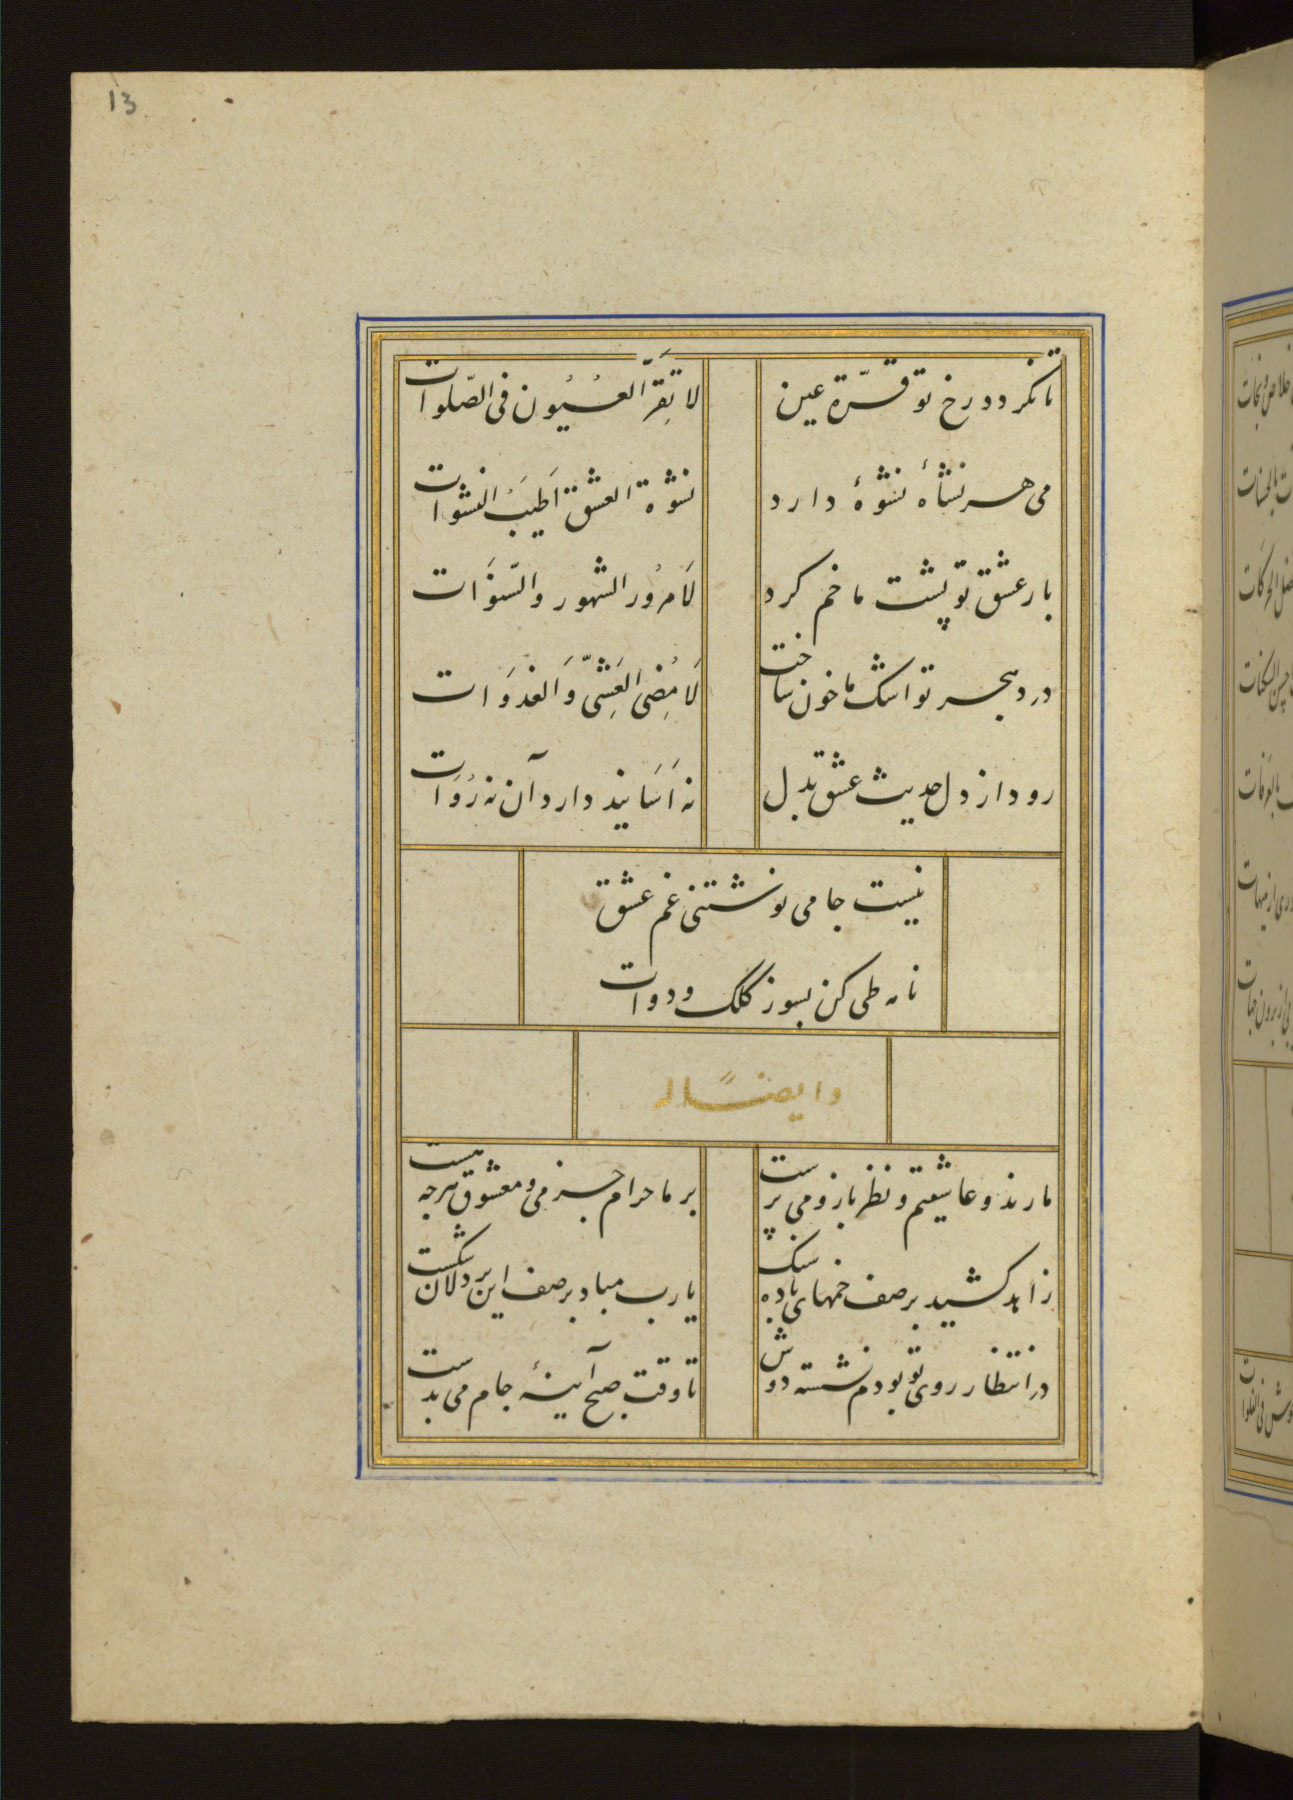 13
تا نکردد رخ تو قرّة عین
لا تَقِرَّ العُیُون فی الصّلوات
می هر نشأهٔ نشوهٔ دارد
نشوة العشق اَطیَبُ النشوات
بار عشق تو پشت ما خم کرد
لَا مرُور الشهور و السّنوَات
درد هجر تو اشک ما خون ساخت
لَا مُضِی العَشِیّ وَ الغدوَات
رود از دل حدیث عشق بدل
نه اَسَانید دارد آن نه رُوَات
نیست جامی نوشتنی غم عشق
نامه طی کن بسوز کلک و دوات
و ایضاً له
ما رند و عاشقیم و نظرباز و می پرست
بر ما حرام جز می و معشوق هرچه هست
زاهد کشید بر صف خمهای باده سنک
یا رب مباد بر صف این پردلان شکست
در انتظار روی تو بودم نشسته دوش
تا وقت صبح آینهٔ جام می بدست